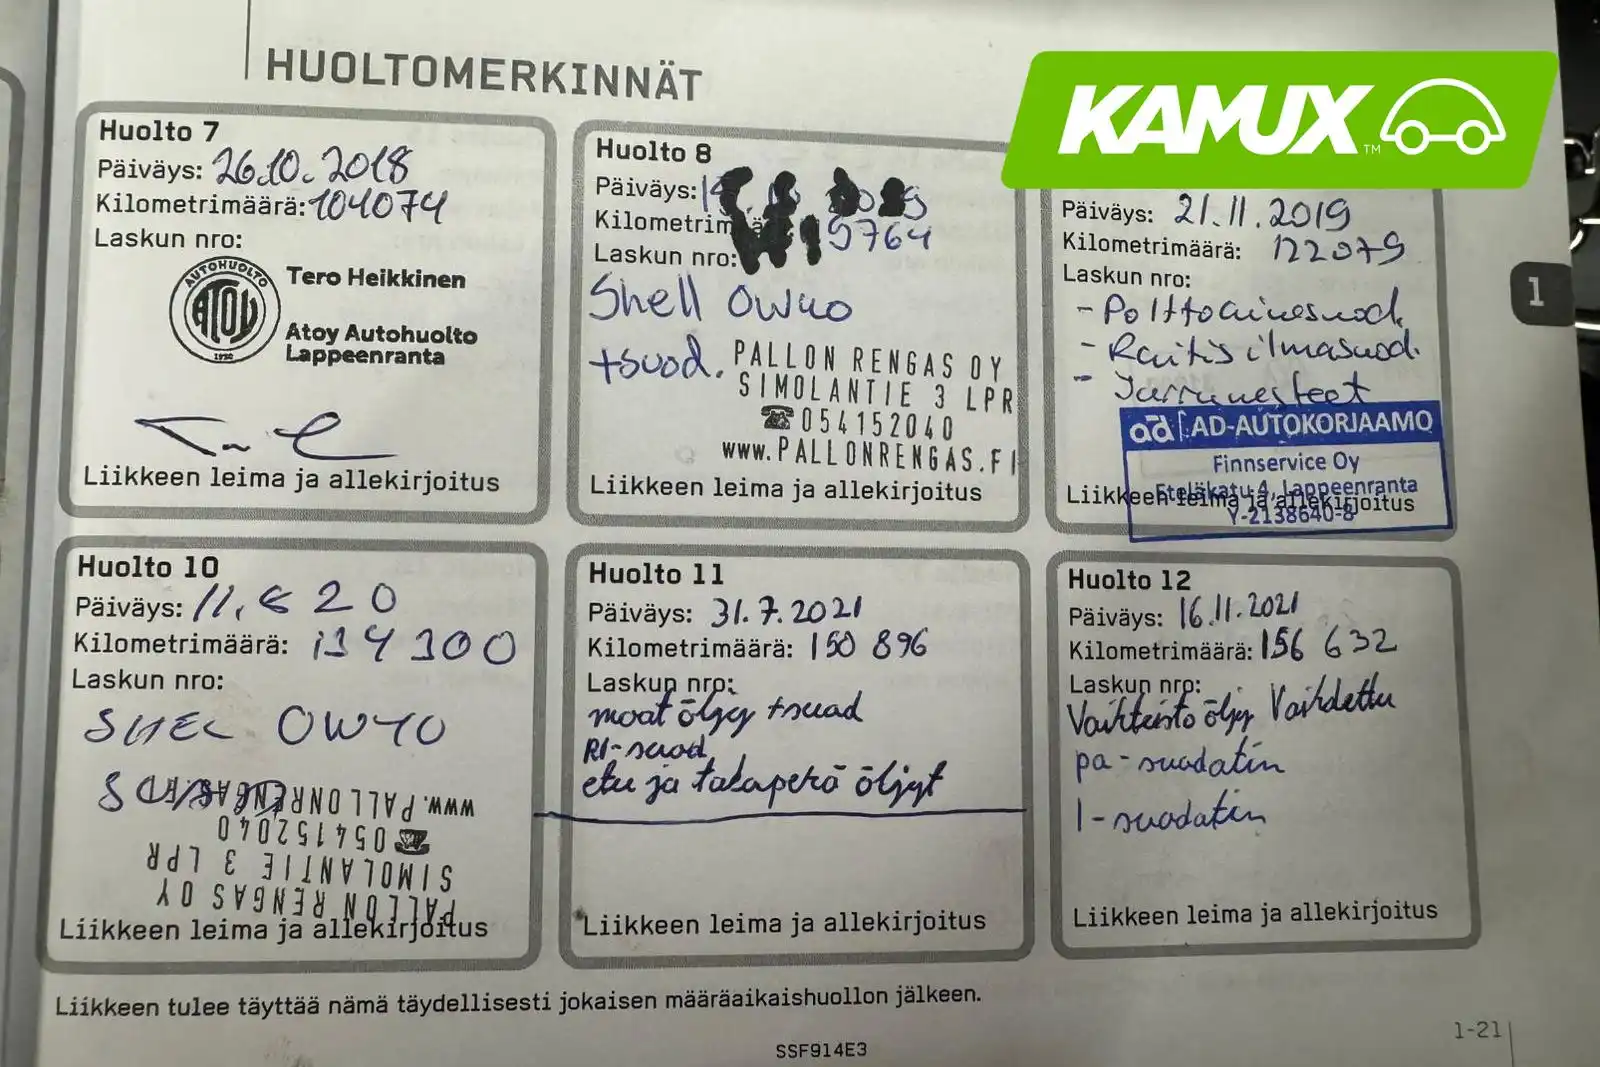 HUOLTOMERKINNÄT
KAMUX
TM
Huolto 7
Päiväys: 26.10.2018
Kilometrimäärä: 104074
Laskun nro:
AUTOHUOLTO
ATOY
1920
Tero Heikkinen
Atoy Autohuolto
Lappeenranta
Liikkeen leima ja allekirjoitus
Huolto 8
Päiväys:
Kilometrim
Laskun nro:
Shell
+suod.
PALLON RENGAS OY
SIMOLANTIE 3 LPR
☎054152040
www.PALLONRENGAS.FI
Liikkeen leima ja allekirjoitus
Päiväys: 21.11.2019
Kilometrimäärä: 122079
Laskun nro:
- Polttoainesuod.
- Raitis ilmasuod.
- Jarrunesteet
ad AD-AUTOKORJAAMO
Finnservice Oy
Eteläkatu 4, Lappeenranta
Y-2138640-8
Liikkeen leima ja allekirjoitus
1
Huolto 10
Päiväys: 11.8 20
Kilometrimäärä: 134300
Laskun nro:
SHEL OW40
www.PALLONRENGAS.FI
☎054152040
SIMOLANTIE 3 LPR
PALLON RENGAS OY
Liikkeen leima ja allekirjoitus
Huolto 11
Päiväys: 31.7.2021
Kilometrimäärä: 150 896
Laskun nro:
moot öljy +suod
RI-suod
etu ja takaperä öljyt
Liikkeen leima ja allekirjoitus
Huolto 12
Päiväys: 16.11.2021
Kilometrimäärä: 156 632
Laskun nro:
Vaihteisto öljy Vaihdettu
pa-suodatin
I-suodatin
Liikkeen leima ja allekirjoitus
Liikkeen tulee täyttää nämä täydellisesti jokaisen määräaikaishuollon jälkeen.
1-21
SSF914E3